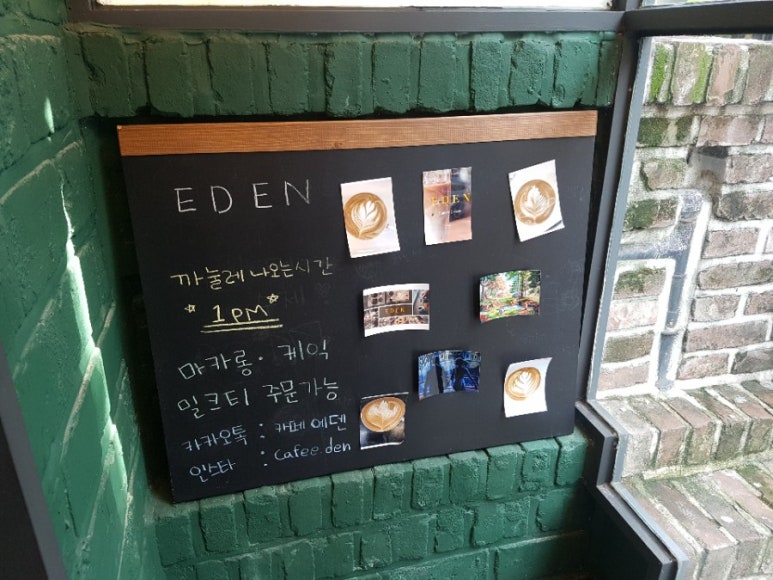 EDEN
까눌레 나오는시간
1PM
마카롱 · 케익
밀크티 주문가능
카카오톡 : 카페에덴
인스타 : Cafee.den
EDEN
EDEN